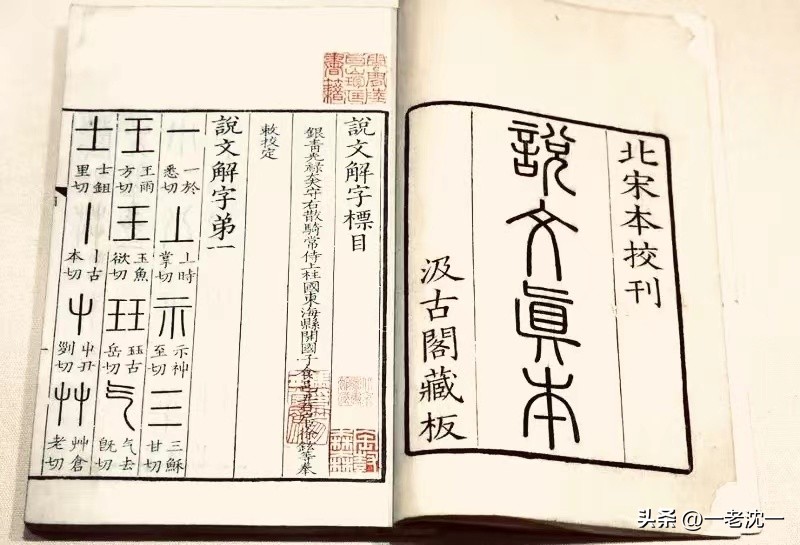 北宋本挍刊
說文眞本
汲古閣藏板
說文解字標目
銀青光祿大夫守右散騎常侍上柱國東海縣開國子食邑五百戶臣徐鉉等奉
敕挍定
說文解字弟一
一 一於悉切 丄 丄時掌切 示 示神至切 三 三穌甘切
王 王雨方切 王 玉魚欲切 玨 玨古岳切 气 气去旣切
士 士鉏里切 丨 丨古本切 屮 屮丑列切 艸 艸倉老切
头条 @一老沈一